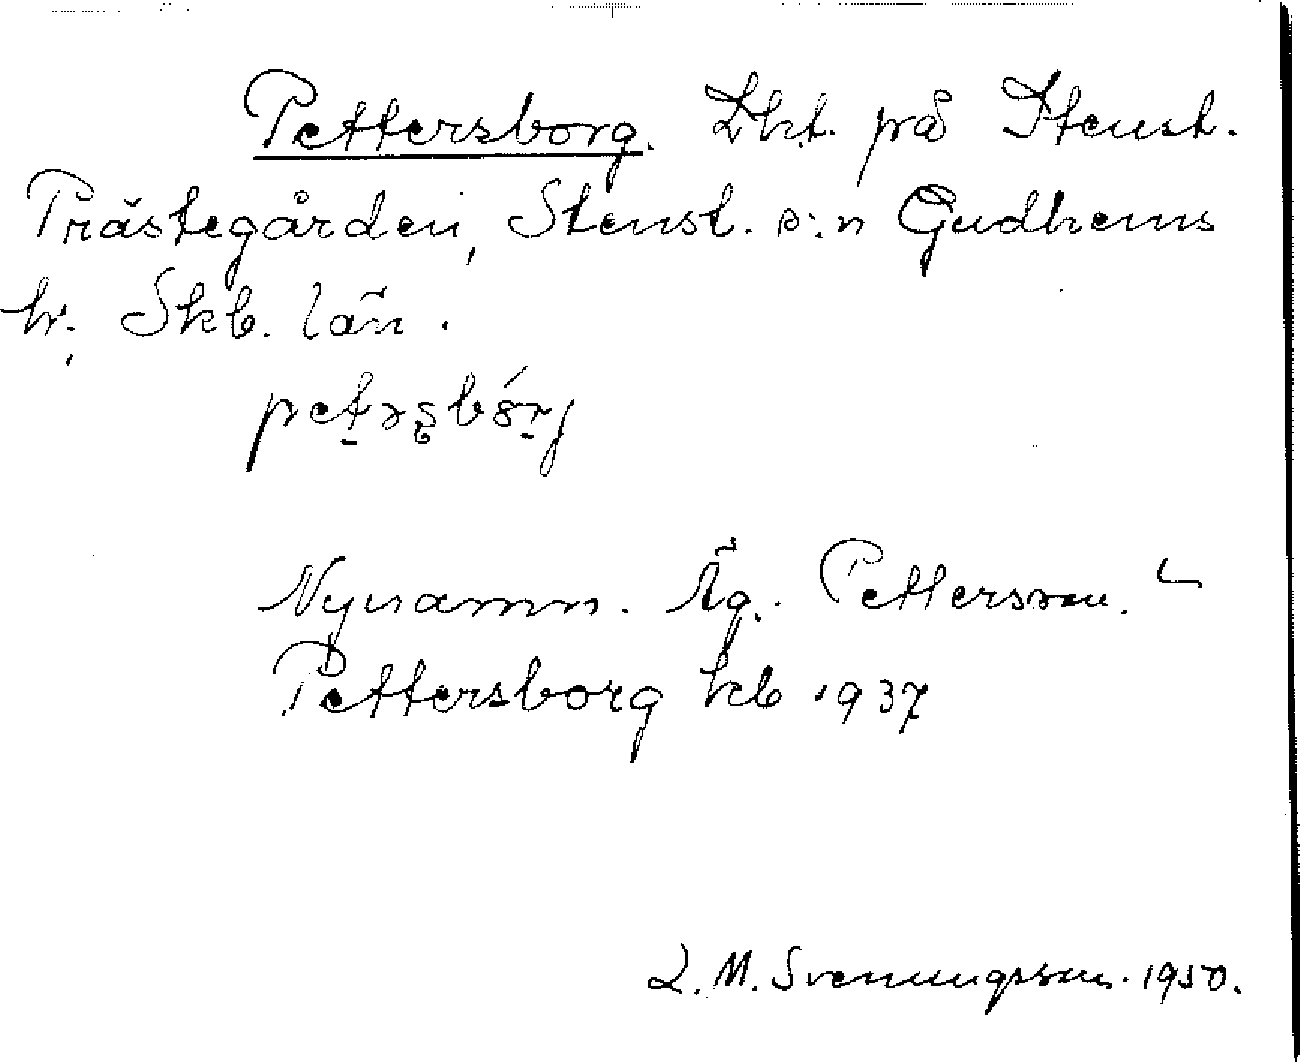 Pettersborg. Lht. på Stenst.
Prästegården, Stenst. s:n Gudhems
hr. Skb. län.
petərsbórj
Nynamn. Äg. Pettersson.
Pettersborg kb 1937
L. M. Svenungsson. 1950.